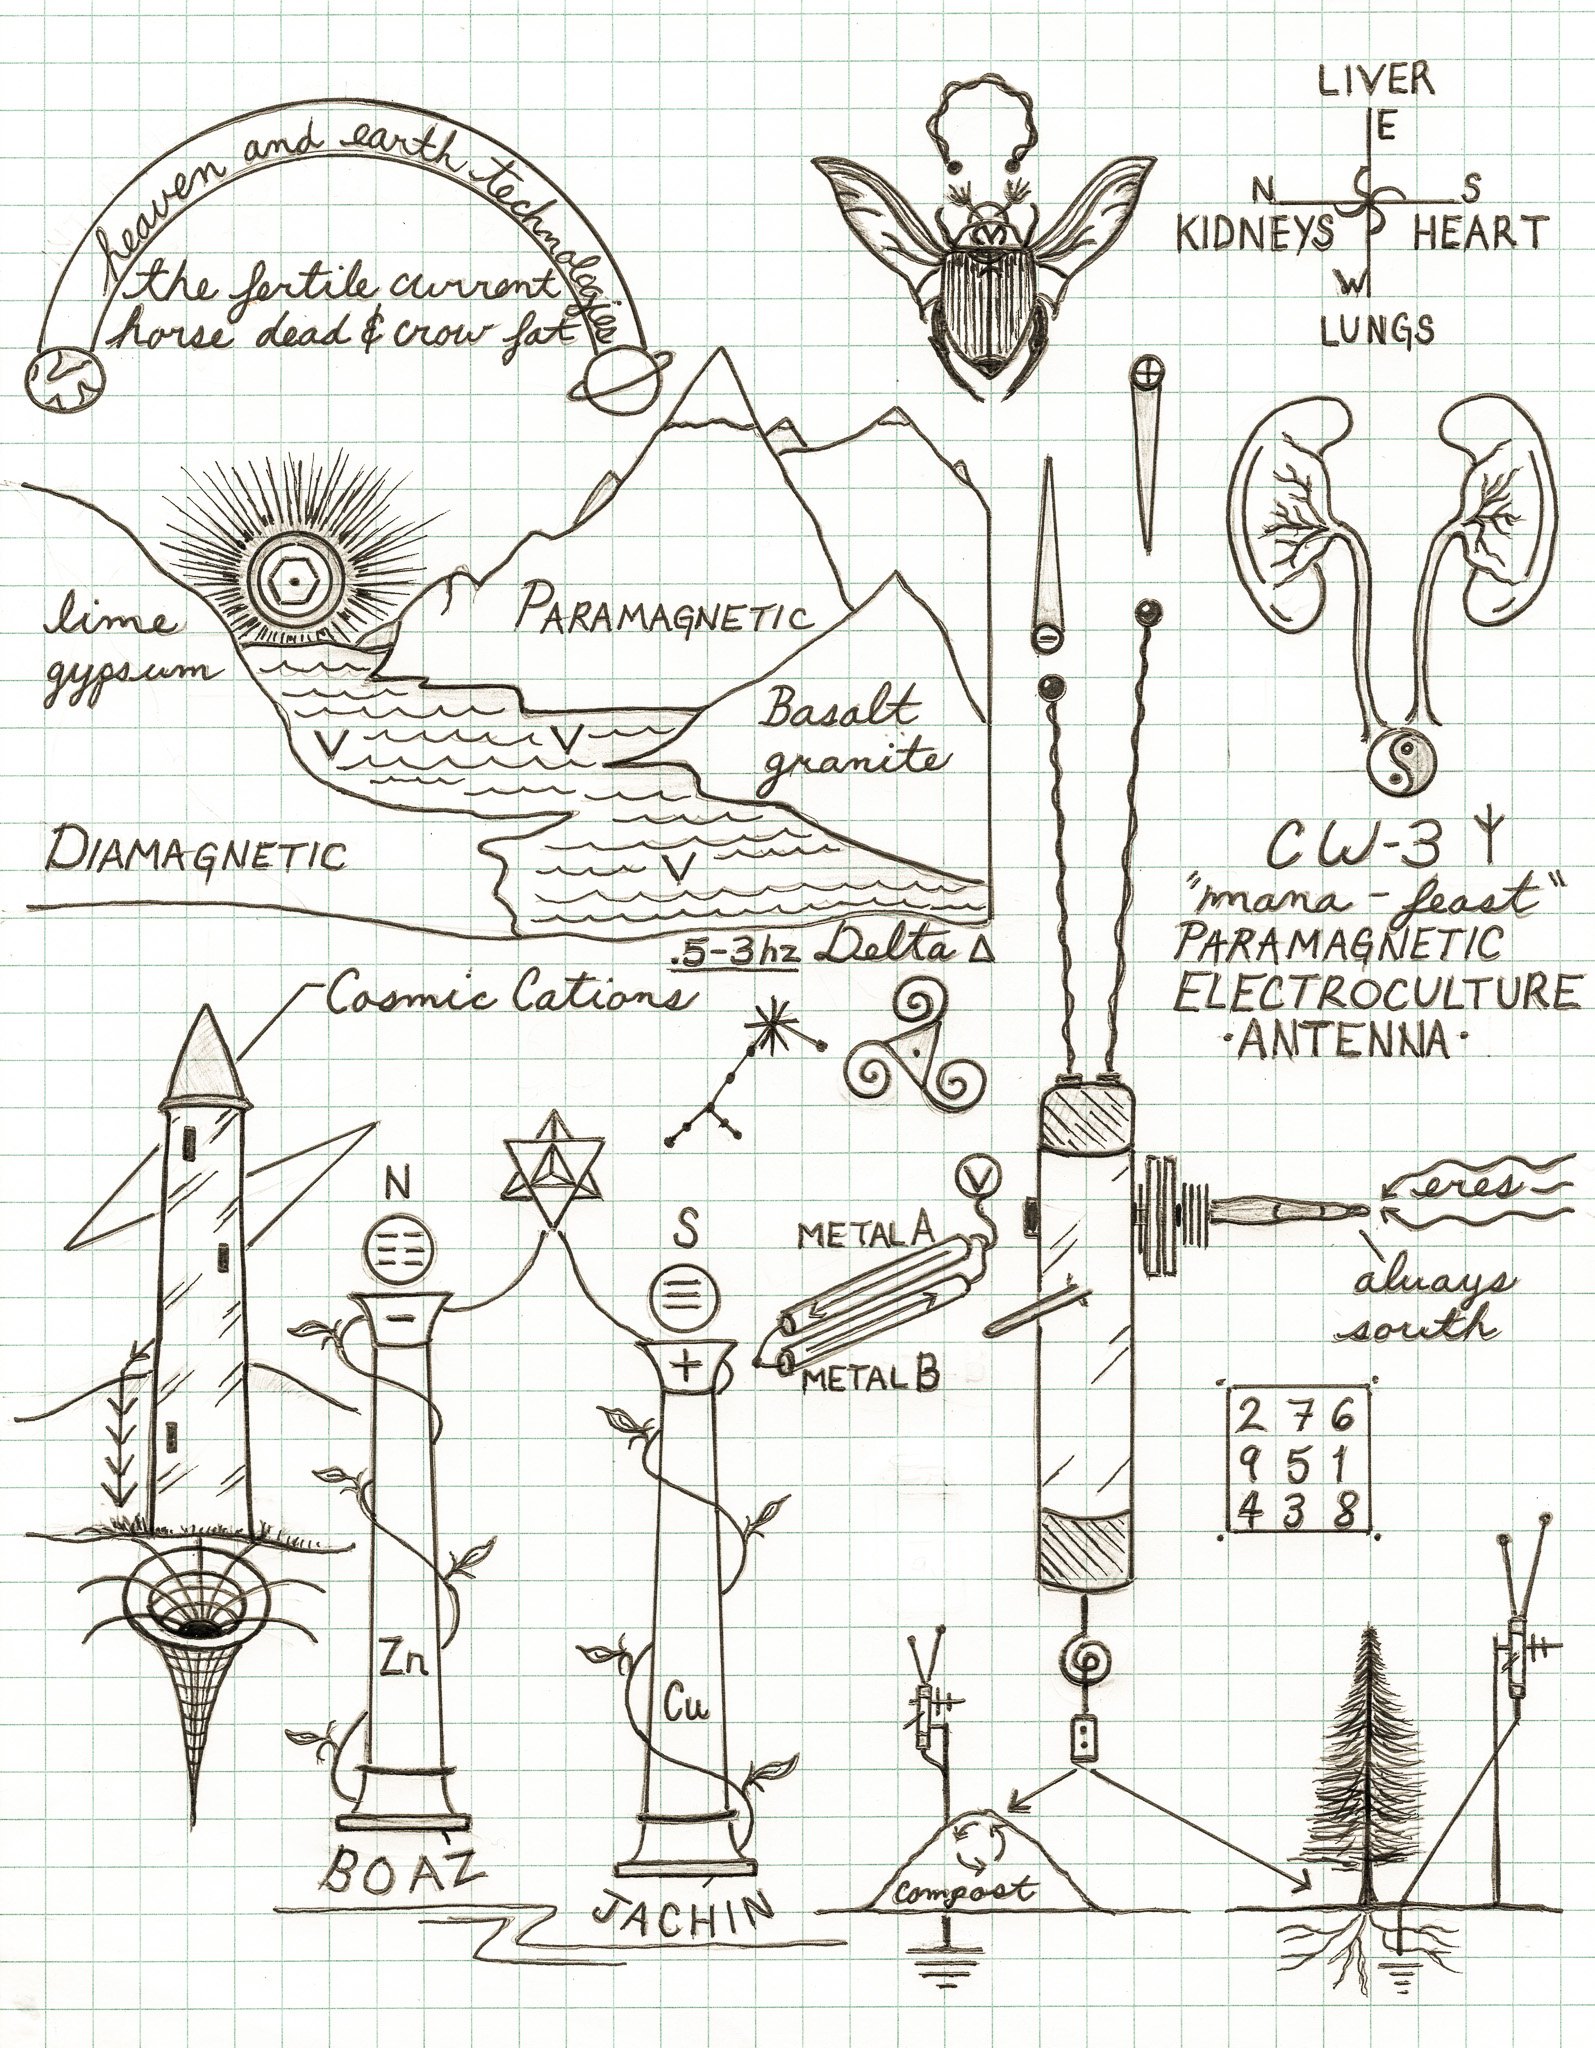 heaven and earth technologies
the fertile current
horse dead & crow fat
LIVER
E
N
S
KIDNEYS
HEART
W
LUNGS
lime
gypsum
PARAMAGNETIC
Basalt
granite
V
V
V
DIAMAGNETIC
.5-3hz Delta Δ
+
−
CW-3
"mana-feast"
PARAMAGNETIC
ELECTROCULTURE
·ANTENNA·
Cosmic Cations
N
S
−
+
V
METAL A
METAL B
eres
always
south
2 7 6
9 5 1
4 3 8
Zn
Cu
BOAZ
JACHIN
compost